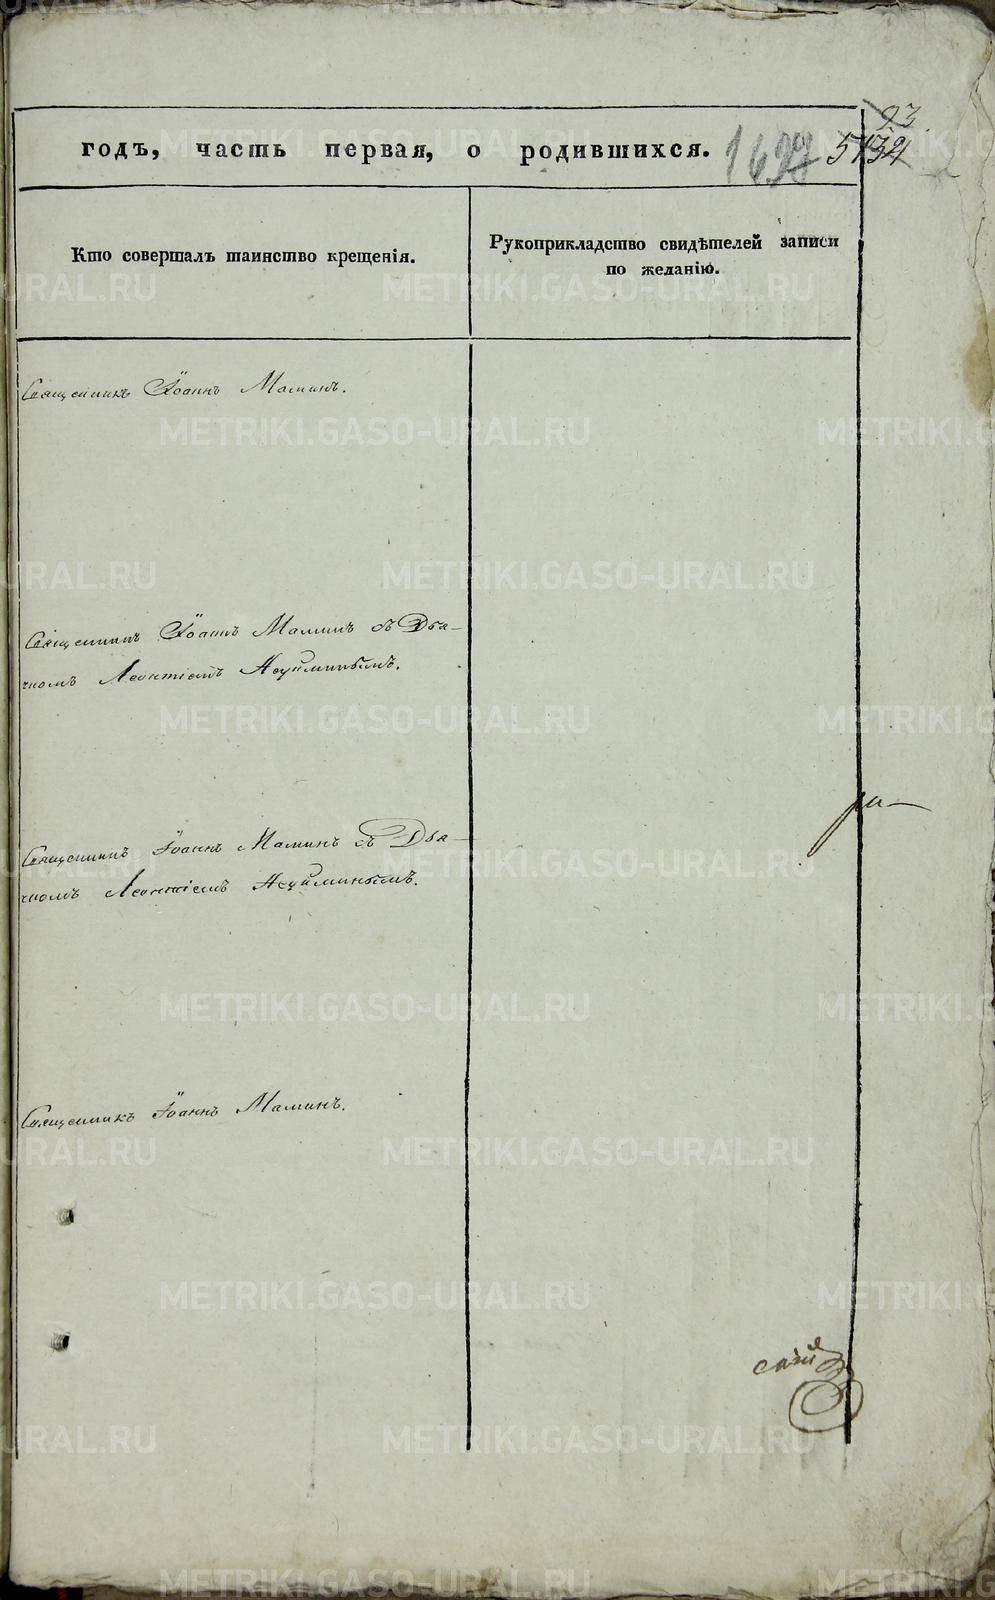 23.
годъ, часть первая, о родившихся.
Кто совершалъ таинство крещенія.
Рукоприкладство свидѣтелей записи
по желанію.
Священникъ Іоаннъ Маминъ.
Священникъ Іоаннъ Маминъ съ Дья-
чкомъ Леонтіемъ Неуйминымъ.
Священникъ Іоаннъ Маминъ съ Дья-
чкомъ Леонтіемъ Неуйминымъ.
Священникъ Іоаннъ Маминъ.
METRIKI.GASO-URAL.RU